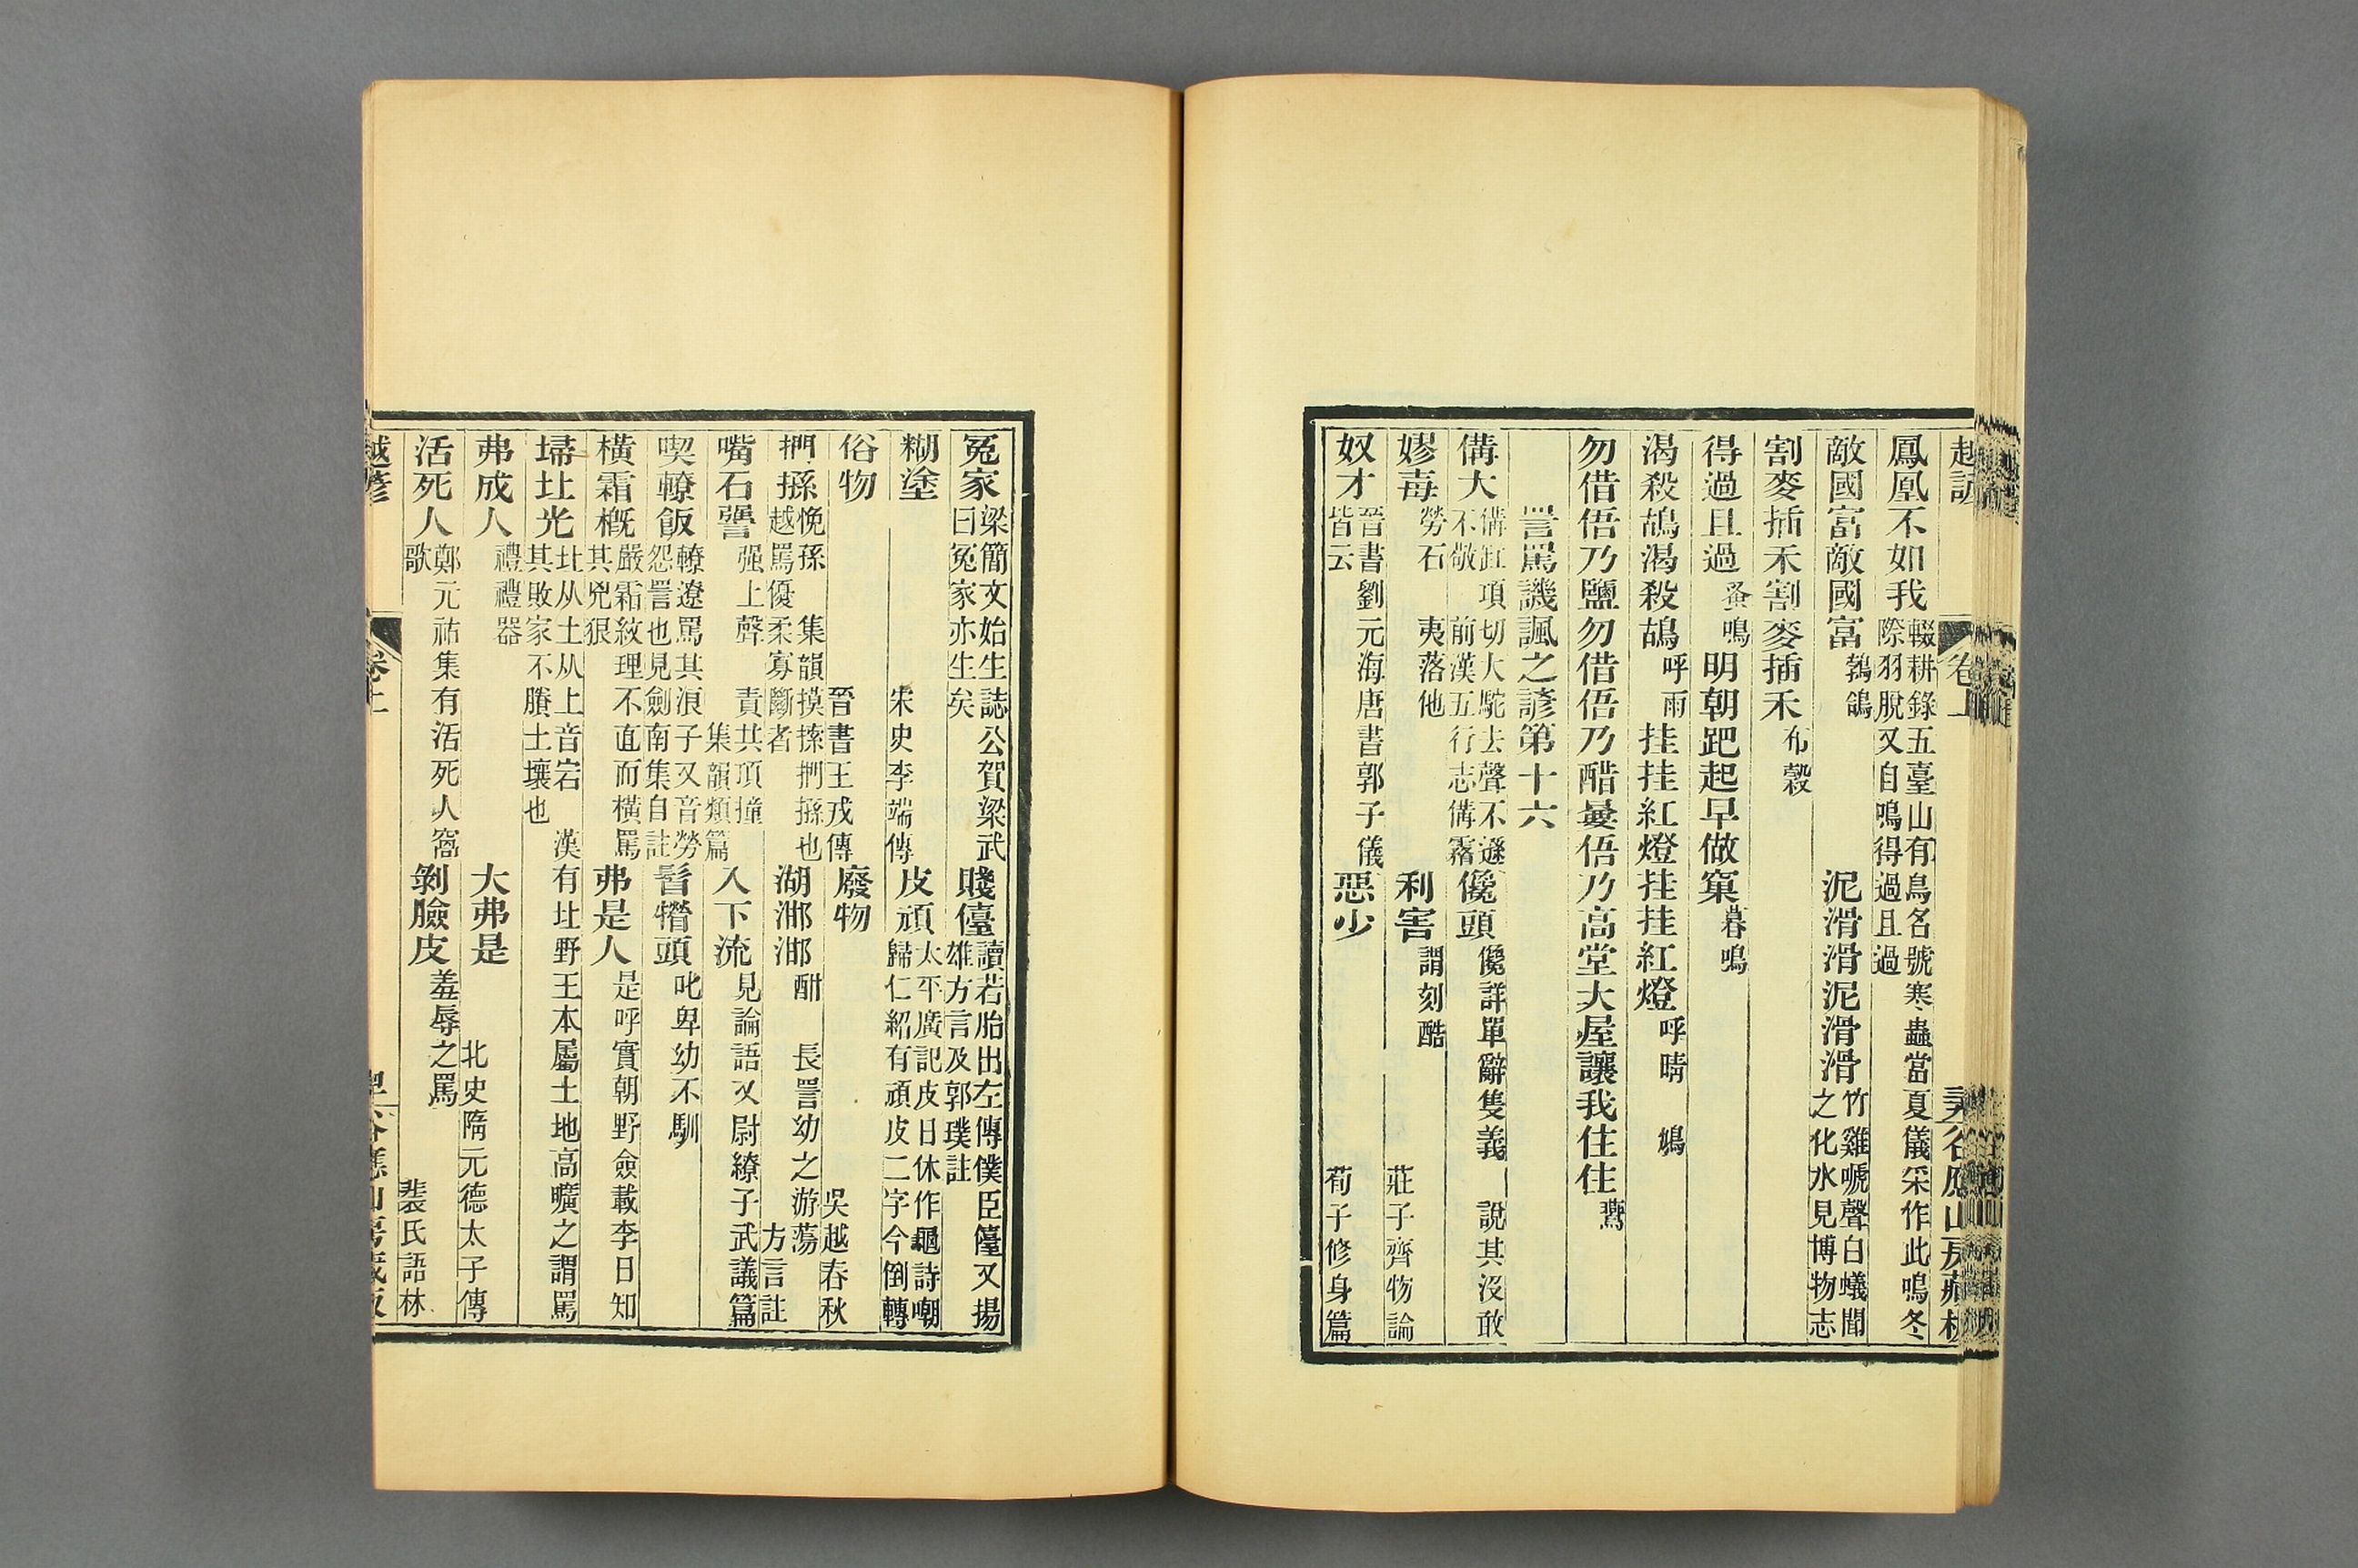 越諺 卷上 谷應山房藏板
鳳凰不如我 輟耕錄五臺山有鳥名號寒蟲當夏儀采作此鳴冬際羽脫又自鳴得過且過
敵國富敵國富 鵓鴿 泥滑滑泥滑滑 竹雞嗁聲白蟻聞之化水見博物志
割麥插禾割麥插禾 布穀
得過且過 蚤鳴 明朝跁起早做窠 暮鳴
渴殺鴣渴殺鴣 呼雨 挂挂紅燈挂挂紅燈 呼晴 鳩
勿借俉乃鹽勿借俉乃醋㬅俉乃高堂大屋讓我住住 鷰
詈罵譏諷之諺第十六
傋大 傋缸項切大駝去聲不遜不敬 前漢五行志傋霿 儳頭 儳詳單辭隻義 說其沒敢
嫪毐 勞石 夷落他 利害 謂刻酷 莊子齊物論
奴才 晉書劉元海唐書郭子儀皆云 惡少 荀子修身篇
冤家 梁簡文始生誌公賀梁武曰冤家亦生矣 賤儓 讀若胎出左傳僕臣儓又揚雄方言及郭璞註
糊塗 宋史李端傳 皮頑 太平廣記皮日休作龜詩嘲歸仁紹有頑皮二字今倒轉
俗物 晉書王戎傳 廢物 吳越春秋
捫搎 悗孫 越罵優柔寡斷者 集韻摸捺捫搎也 湖㴥㴥 酣 長詈幼之游蕩 方言註
嘴石 强上聲 責其項撞 集韻類篇 人下流 見論語又尉繚子武議篇
喫轑飯 轑遼罵其浪子又音勞怨詈也見劍南集自註 髻㸈頭 叱卑幼不馴
橫霜概 嚴霜紋理不直而橫罵其兇狠 弗是人 是呼實朝野僉載李日知
埽㘰光 㘰从土从上音宕其敗家不賸土壤也 漢有㘰野王本屬土地高曠之謂罵
弗成人 禮禮器 大弗是 北史隋元德太子傳
活死人 鄭元祐集有活死人窩歌 剝臉皮 羞辱之罵 裴氏語林
越諺 卷上 谷應山房藏板